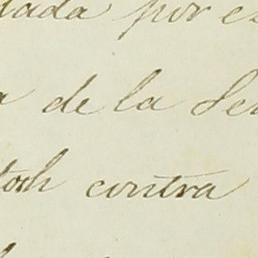 dada por es
a de la Se
tosh contra